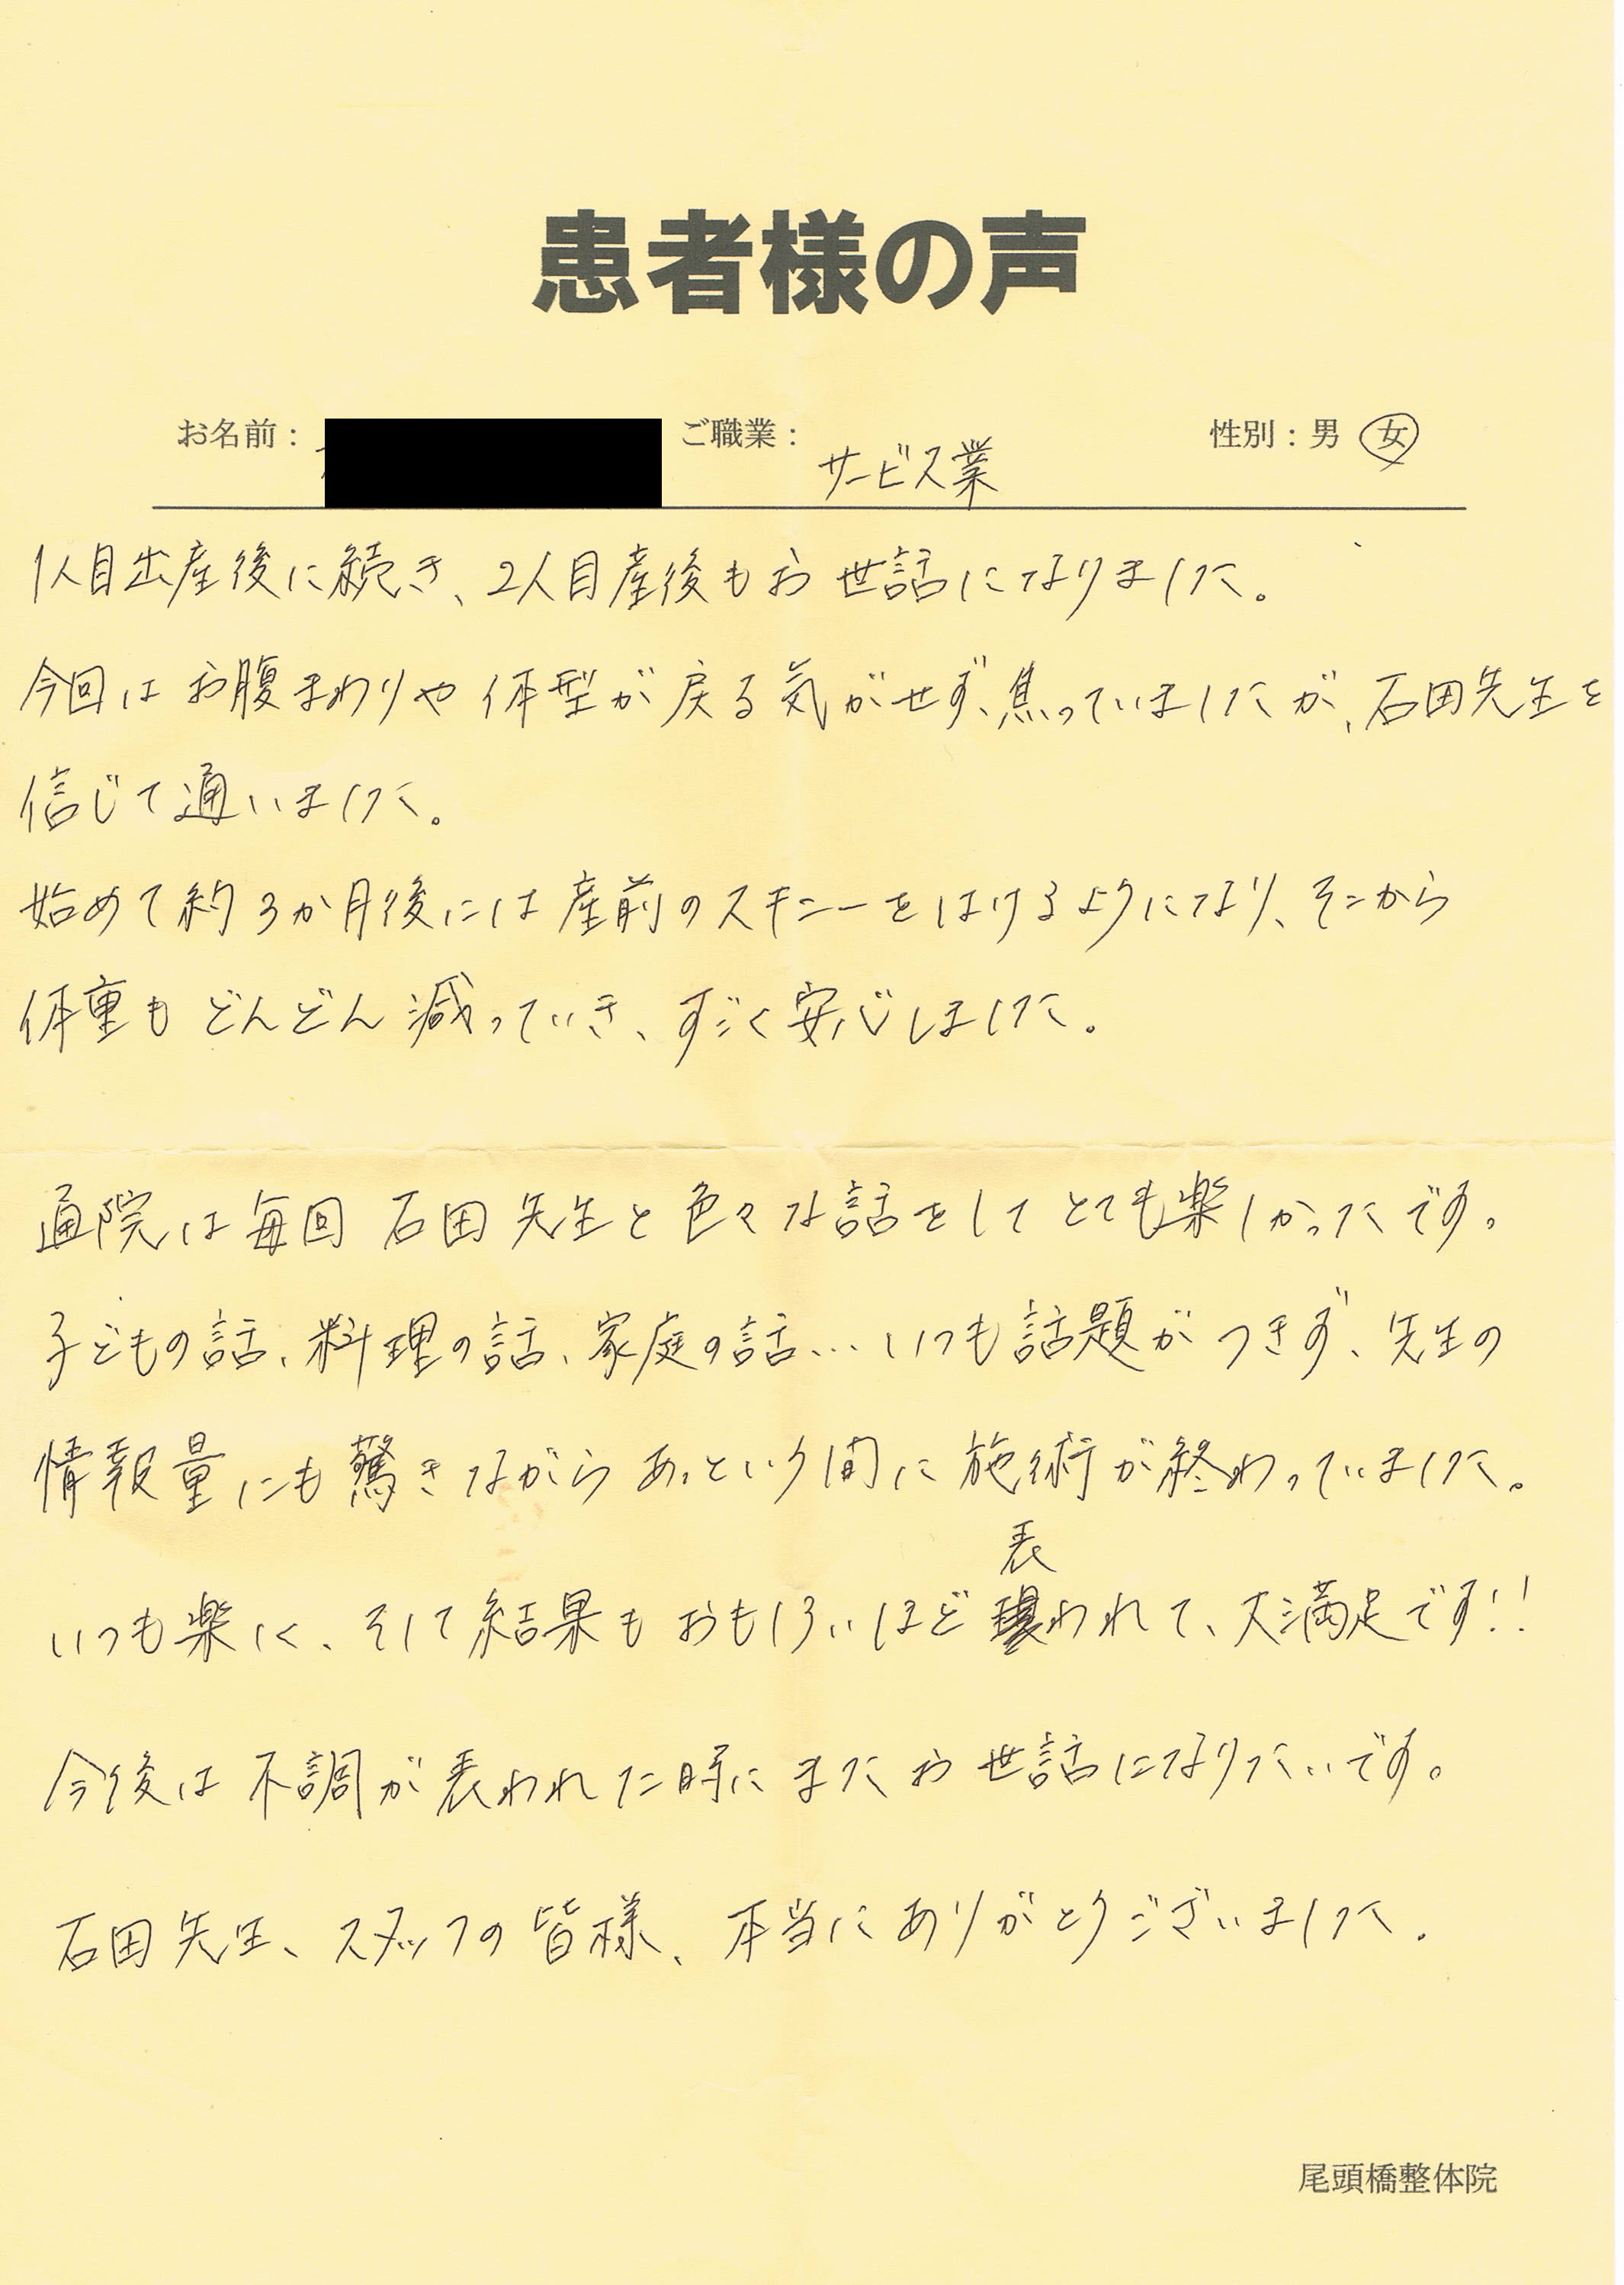 患者様の声
お名前： ご職業： サービス業 性別：男 女
1人目出産後に続き、2人目産後もお世話になりました。
今回はお腹まわりや体型が戻る気がせず、焦っていましたが、石田先生を
信じて通いました。
始めて約3か月後には産前のスキニーをはけるようになり、そこから
体重もどんどん減っていき、すごく安心しました。
通院は毎回石田先生と色々な話をしてとても楽しかったです。
子どもの話、料理の話、家庭の話…いつも話題がつきず、先生の
情報量にも驚きながらあっという間に施術が終わっていました。
いつも楽しく、そして結果もおもしろいほど表われて、大満足です!!
今後は不調が表われた時にまたお世話になりたいです。
石田先生、スタッフの皆様、本当にありがとうございました。
尾頭橋整体院